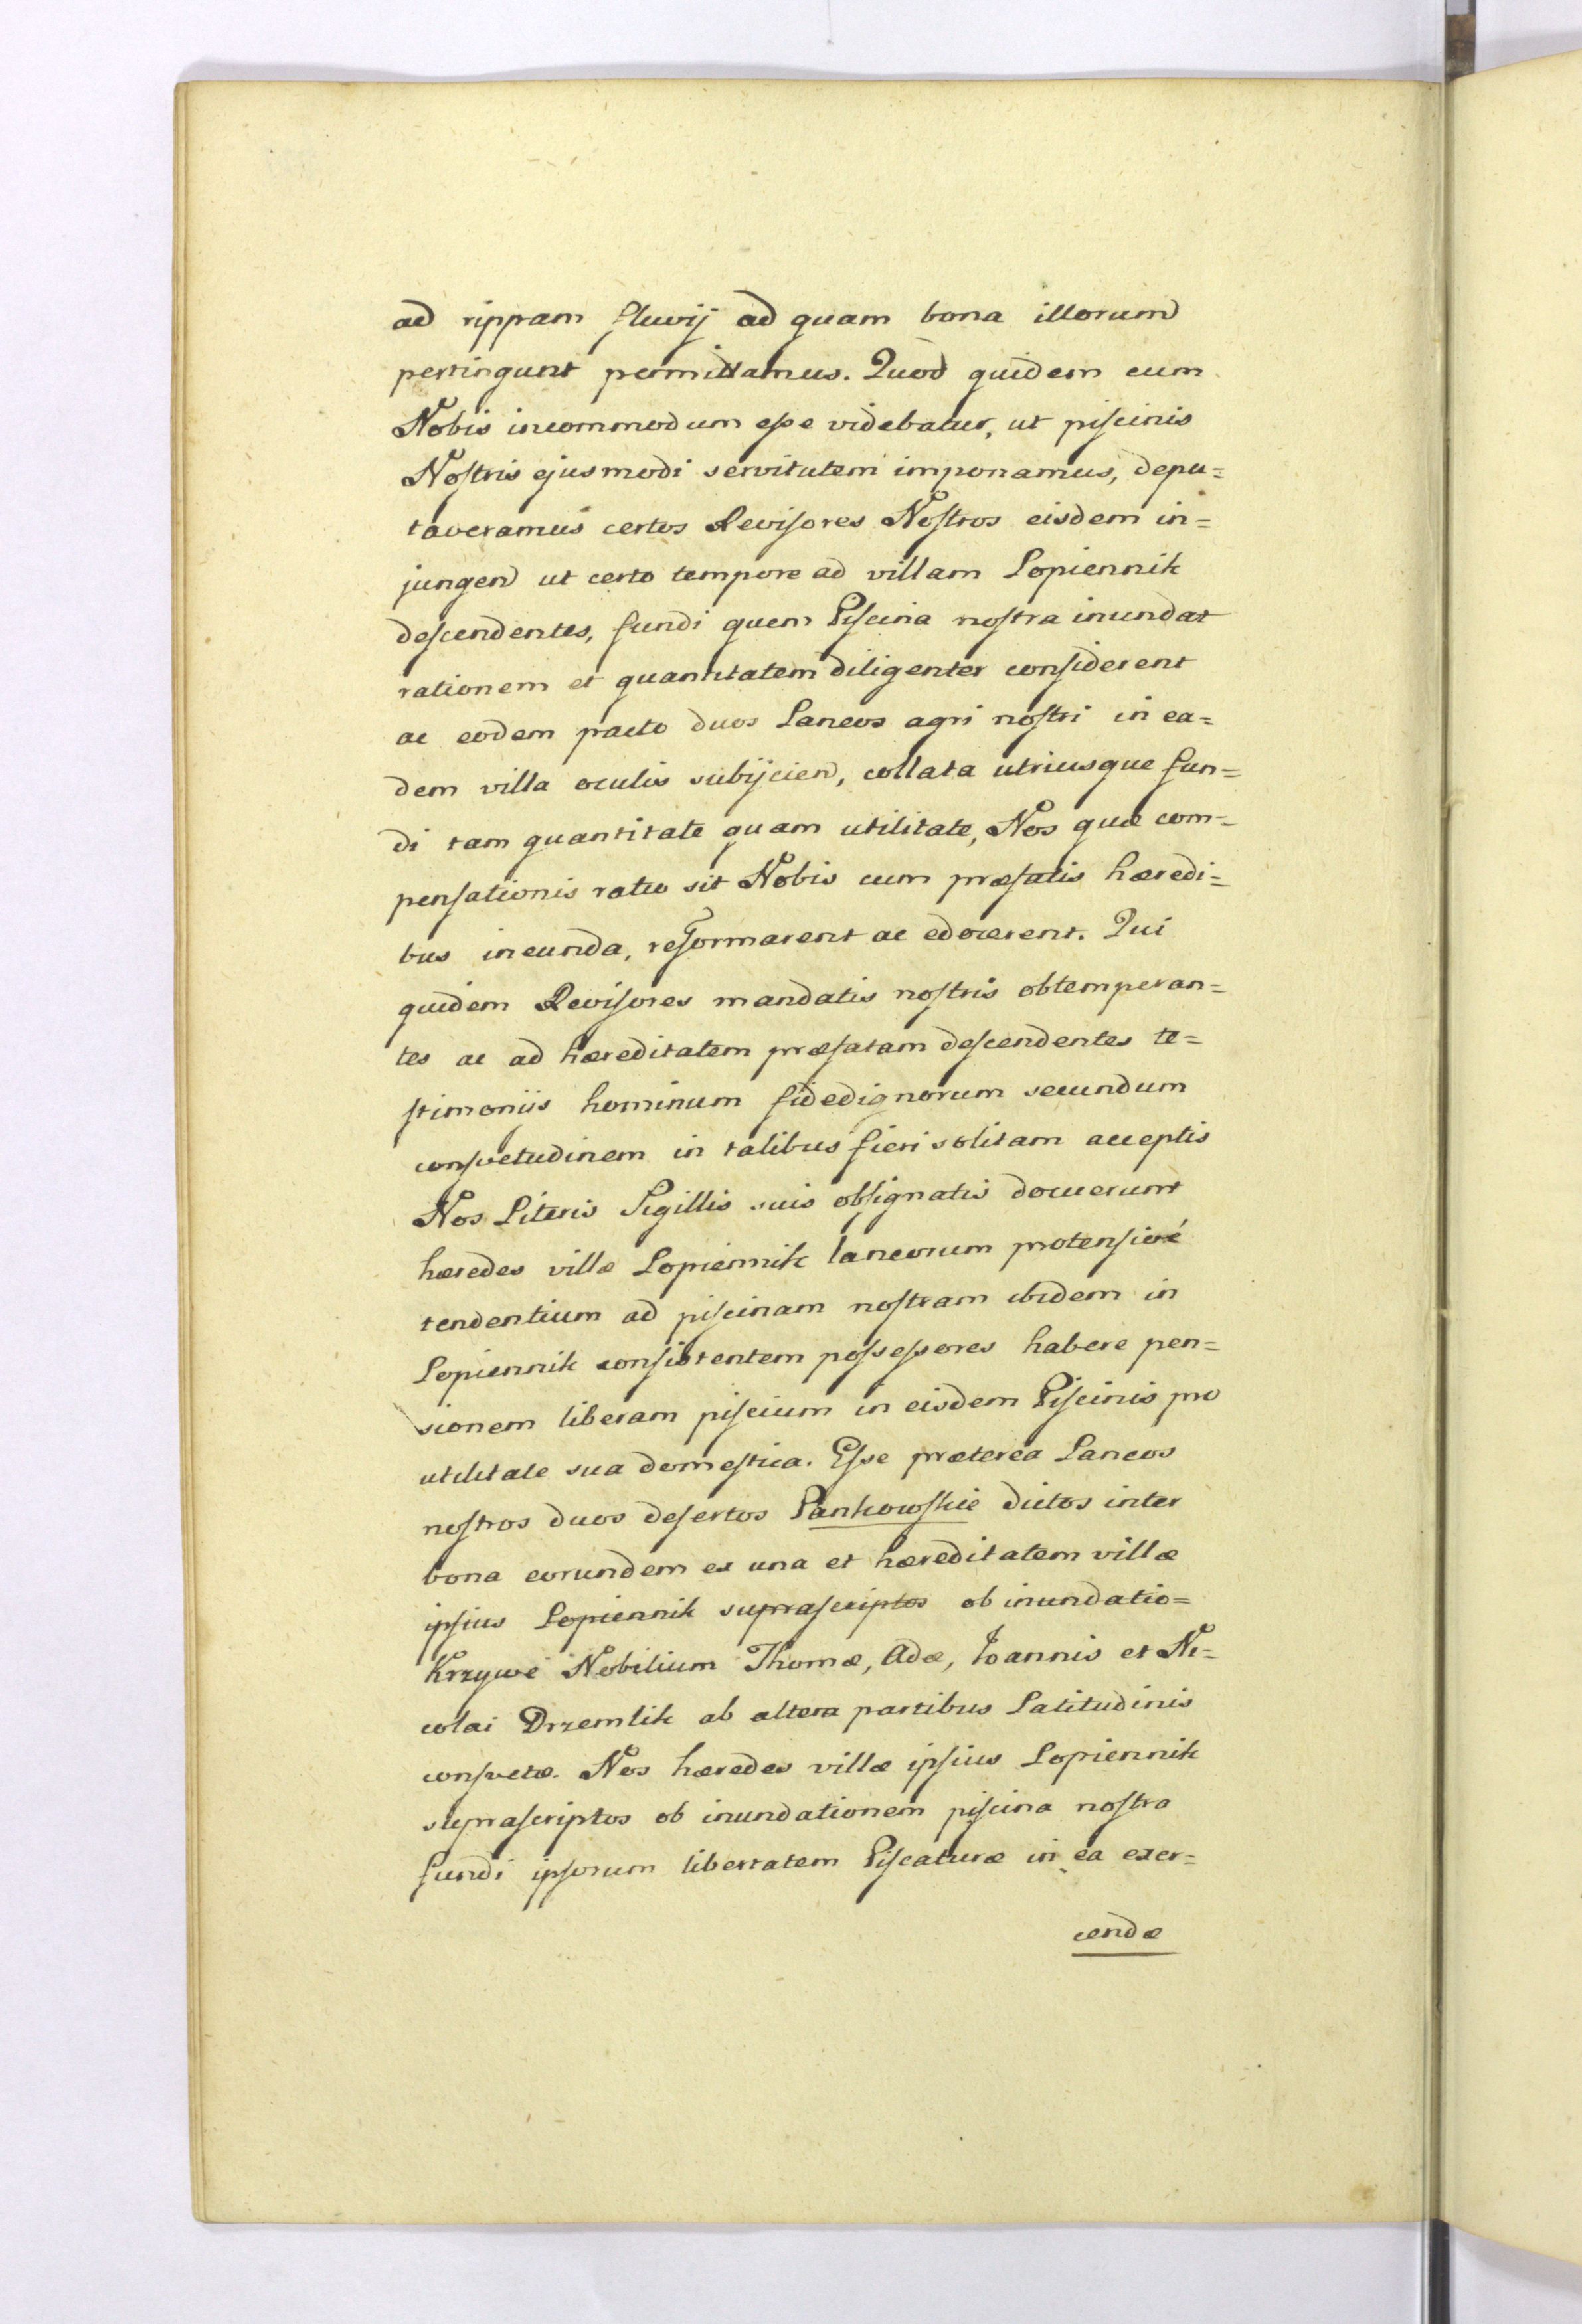 ad rippam fluvij ad quam bona illorum
pertingunt permittamus. Quod quidem cum
Nobis incommodum esse videbatur, ut piscinis
Nostris ejusmodi servitutem imponamus, depu=
taveramus certos Revisores Nostros eisdem in=
jungen ut certo tempore ad villam Lopiennik
descendentes, fundi quem Piscina nostra inundat
rationem et quantitatem diligenter considerent
ac eodem pacto duos Laneos agri nostri in ea=
dem villa oculis subijcien, collata utriusque fun=
di tam quantitate quam utilitate, Nos quæ com=
pensationis ratio sit Nobis cum præfatis hæredi=
bus ineunda, reformarent ac edocerent. Qui
quidem Revisores mandatis nostris obtemperan=
tes ac ad hæreditatem præfatam descendentes te=
stimoniis hominum fidedignorum secundum
consvetudinem in talibus fieri solitam acceptis
Nos Literis Sigillis suis obsignatis docuerunt
hæredes villæ Lopiennik laneorum protensive
tendentium ad piscinam nostram ibidem in
Lopiennik consistentem possessores habere pen=
sionem liberam piscium in eisdem Piscinis pro
utilitate sua domestica. Esse præterea Laneos
nostros duos desertos Pankowskie dictos inter
bona eorundem ex una et hæreditatem villæ
ipsius Lopiennik suprascriptos ob inundatio=
Krzywe Nobilium Thomæ, Adæ, Joannis et Ni=
colai Drzemlik ab altera partibus Latitudinis
consvetæ. Nos hæredes villæ ipsius Lopiennik
suprascriptos ob inundationem piscina nostra
fundi ipsorum libertatem Piscaturæ in ea exer=
cendæ